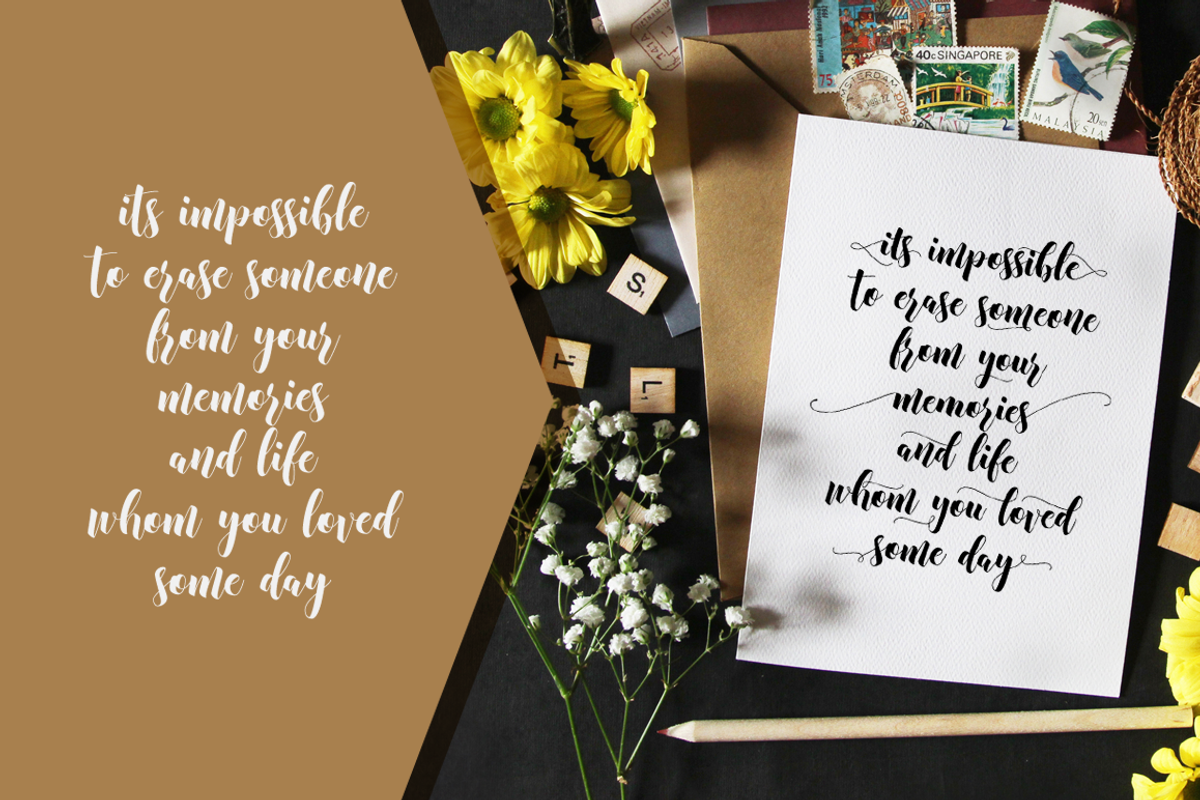 its impossible
to erase someone
from your
memories
and life
whom you loved
some day
75
AMSTERDAM
40c SINGAPORE
MALAYSIA 20 sen
its impossible
to erase someone
from your
memories
and life
whom you loved
some day
S
T
L